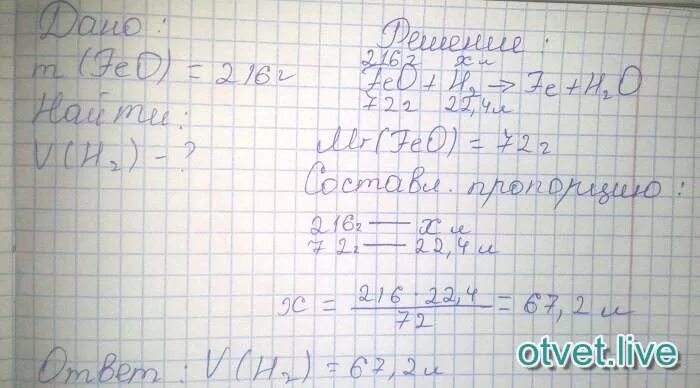 Дано:
m (FeO) = 216г
Найти:
V(H₂) - ?
Решение:
216г x л
FeO + H₂ → Fe + H₂O
72г 22,4л
Mr(FeO) = 72г
Составл. пропорцию:
216г — x л
72г — 22,4 л
x = 216 · 22,4 / 72 = 67,2 л
Ответ: V(H₂) = 67,2л
otvet.live